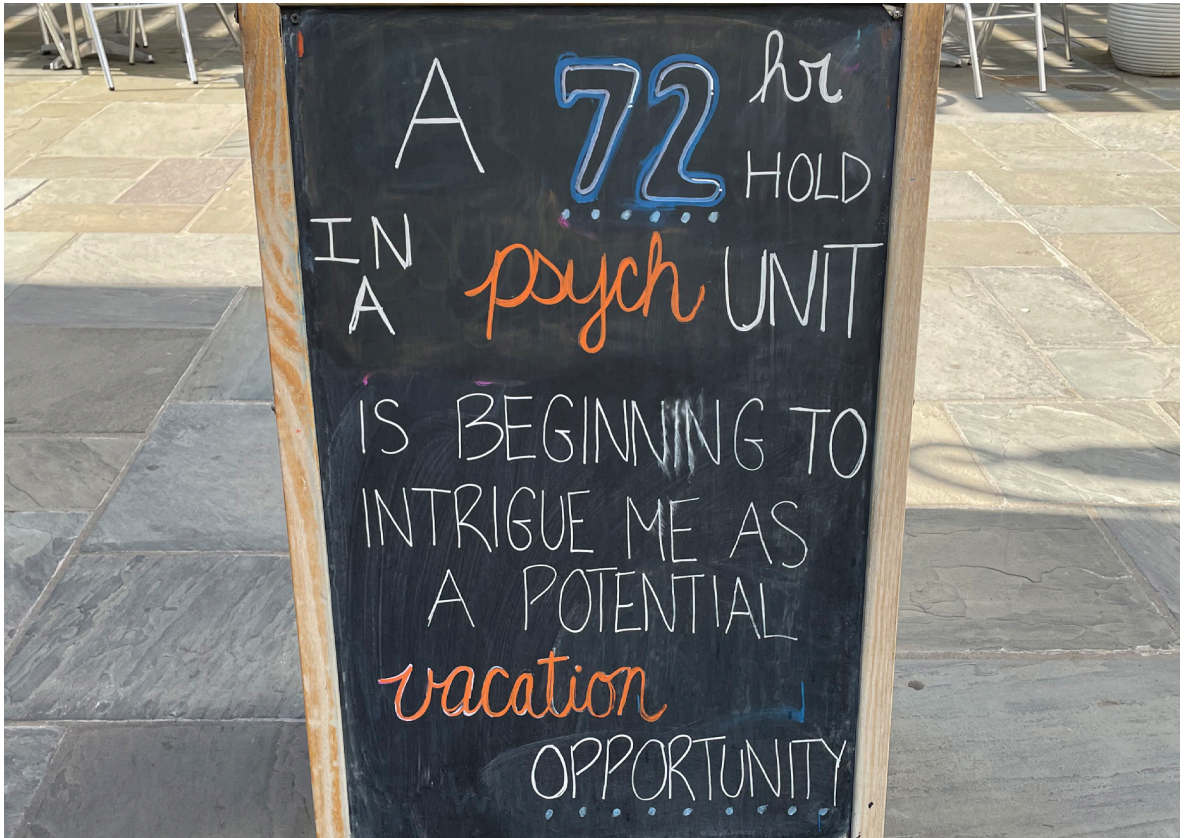 A 72 hr
HOLD
IN
A psych UNIT
IS BEGINNING TO
INTRIGUE ME AS
A POTENTIAL
vacation
OPPORTUNITY